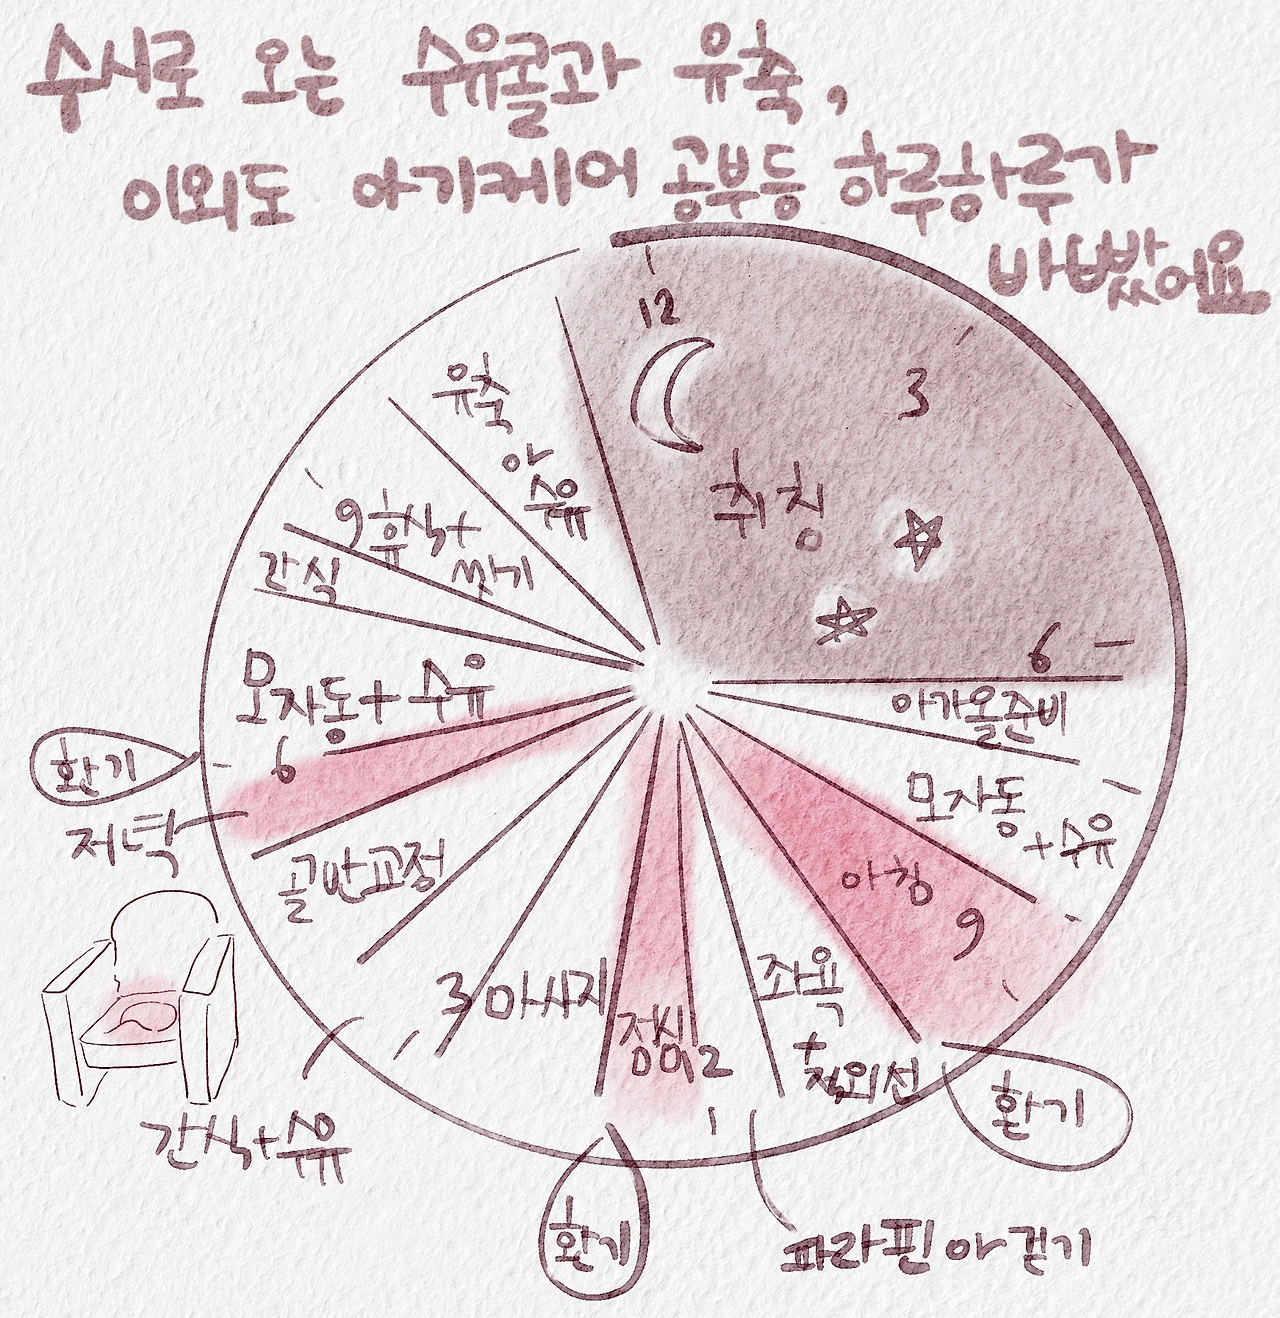 수시로 오는 수유콜과 유축,
이외도 아기케어 공부등 하루하루가
바빴어요
12
3
취침
6
아가올준비
모자동
+수유
아침
9
환기
좌욕
+
적외선
파라핀 아 걷기
점심
12
환기
마사지
3
간식+수유
골반교정
저녁
6
환기
모자동+수유
간식
9
휴식+
씻기
유축
아
수유